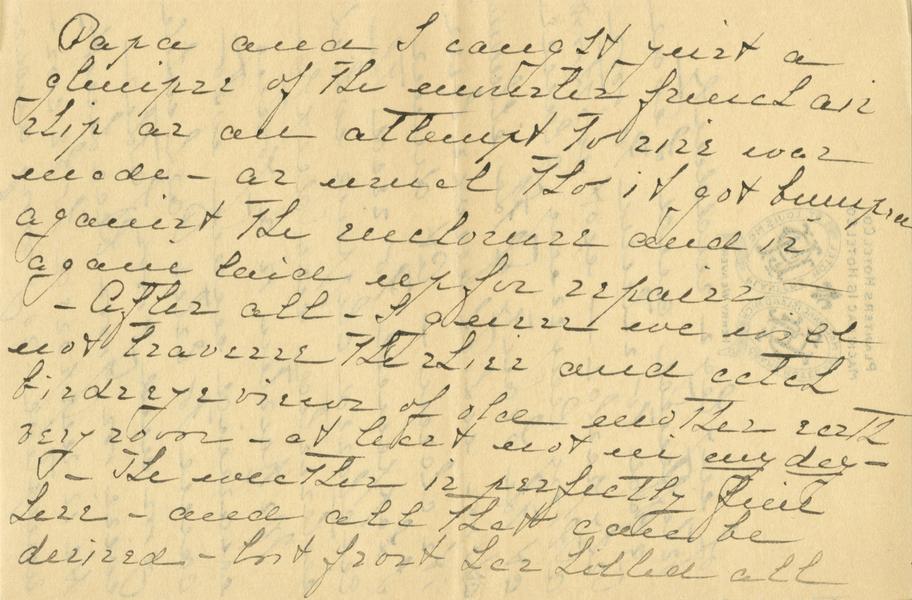 Papa and I caught just a
glimpse of the monster french air
ship as an attempt to rise was
made - as usual tho it got bumped
against the inclosure and is
again laid up for repairs —
- After all - I guess we will
not traverse the skies and catch
birdseyeviews of old mother earth
very soon - at least not in my day -
- The weather is perfectly fine
here - and all that can be
desired - but frost has killed all